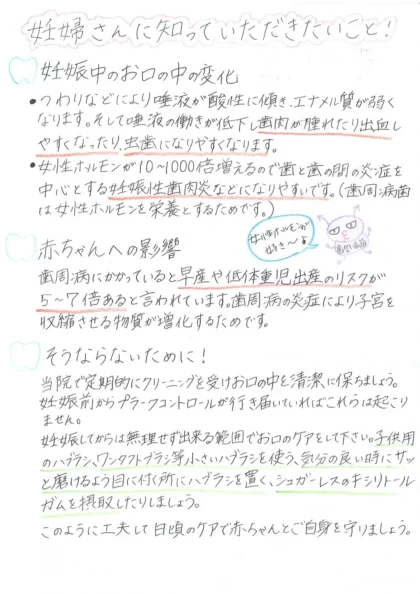 妊婦さんに知っていただきたいこと！
妊娠中のお口の中の変化
・つわりなどにより唾液が酸性に傾き、エナメル質が弱く
なります。そして唾液の働きが低下し歯肉が腫れたり出血し
やすくなったり、虫歯になりやすくなります。
・女性ホルモンが10〜1000倍増えるので歯と歯の間の炎症を
中心とする妊娠性歯肉炎などになりやすいです。（歯周病菌
は女性ホルモンを栄養とするためです。）
女性ホルモンが
好き〜♪
歯周病菌
赤ちゃんへの影響
歯周病にかかっていると早産や低体重児出産のリスクが
5〜7倍あると言われています。歯周病の炎症により子宮を
収縮させる物質が増化するためです。
そうならないために！
当院で定期的にクリーニングを受けお口の中を清潔に保ちましょう。
妊娠前からプラークコントロールが行き届いていればこれらは起こり
ません。
妊娠してからは無理せず出来る範囲でお口のケアをして下さい。子供用
のハブラシ、ワンタフトブラシ等小さいハブラシを使う、気分の良い時にサッ
と磨けるよう目に付く所にハブラシを置く、シュガーレスのキシリトール
ガムを摂取したりしましょう。
このように工夫して日頃のケアで赤ちゃんとご自身を守りましょう。